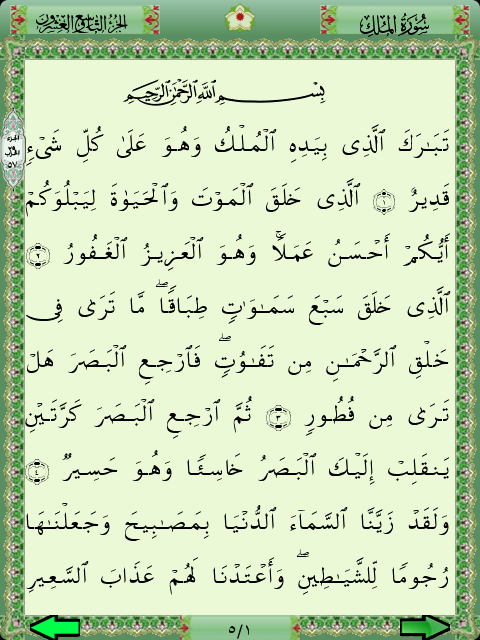 سُورَةُ المُلْك
الجزء التاسع والعشرون
بِسْمِ اللَّهِ الرَّحْمَٰنِ الرَّحِيمِ
تَبَـٰرَكَ ٱلَّذِى بِيَدِهِ ٱلْمُلْكُ وَهُوَ عَلَىٰ كُلِّ شَىْءٍ
قَدِيرٌ ١ ٱلَّذِى خَلَقَ ٱلْمَوْتَ وَٱلْحَيَوٰةَ لِيَبْلُوَكُمْ
أَيُّكُمْ أَحْسَنُ عَمَلًا ۚ وَهُوَ ٱلْعَزِيزُ ٱلْغَفُورُ ٢
ٱلَّذِى خَلَقَ سَبْعَ سَمَـٰوَٰتٍ طِبَاقًا ۖ مَّا تَرَىٰ فِى
خَلْقِ ٱلرَّحْمَـٰنِ مِن تَفَـٰوُتٍ ۖ فَٱرْجِعِ ٱلْبَصَرَ هَلْ
تَرَىٰ مِن فُطُورٍ ٣ ثُمَّ ٱرْجِعِ ٱلْبَصَرَ كَرَّتَيْنِ
يَنقَلِبْ إِلَيْكَ ٱلْبَصَرُ خَاسِئًا وَهُوَ حَسِيرٌ ٤
وَلَقَدْ زَيَّنَّا ٱلسَّمَآءَ ٱلدُّنْيَا بِمَصَـٰبِيحَ وَجَعَلْنَـٰهَا
رُجُومًا لِّلشَّيَـٰطِينِ ۖ وَأَعْتَدْنَا لَهُمْ عَذَابَ ٱلسَّعِيرِ
٥/١